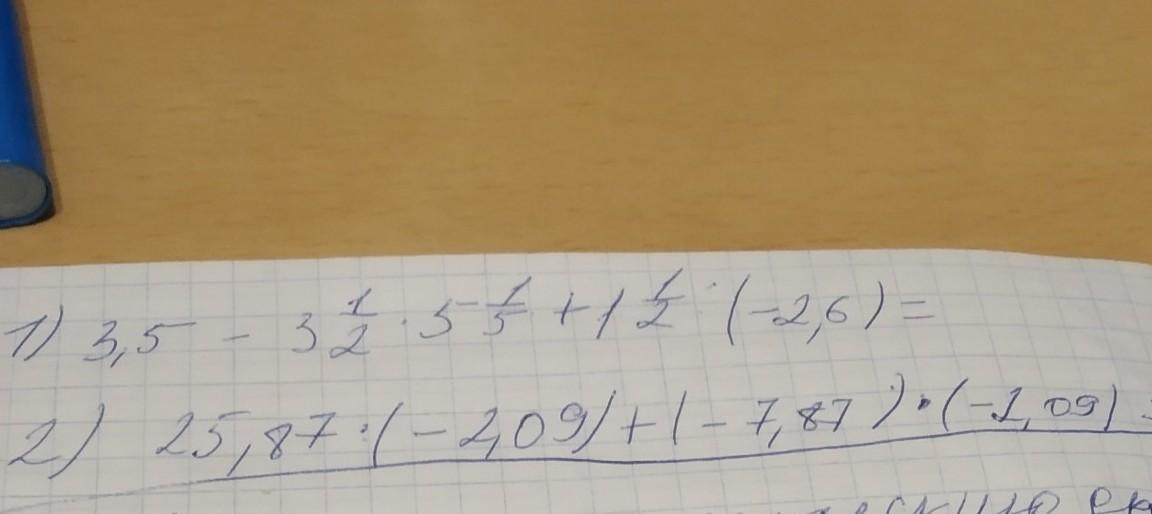 1) 3,5 - 3 1/2 · 5 1/5 + 1 1/2 · (-2,6) =
2) 25,87 · (-2,09) + (-7,87) · (-2,09) =